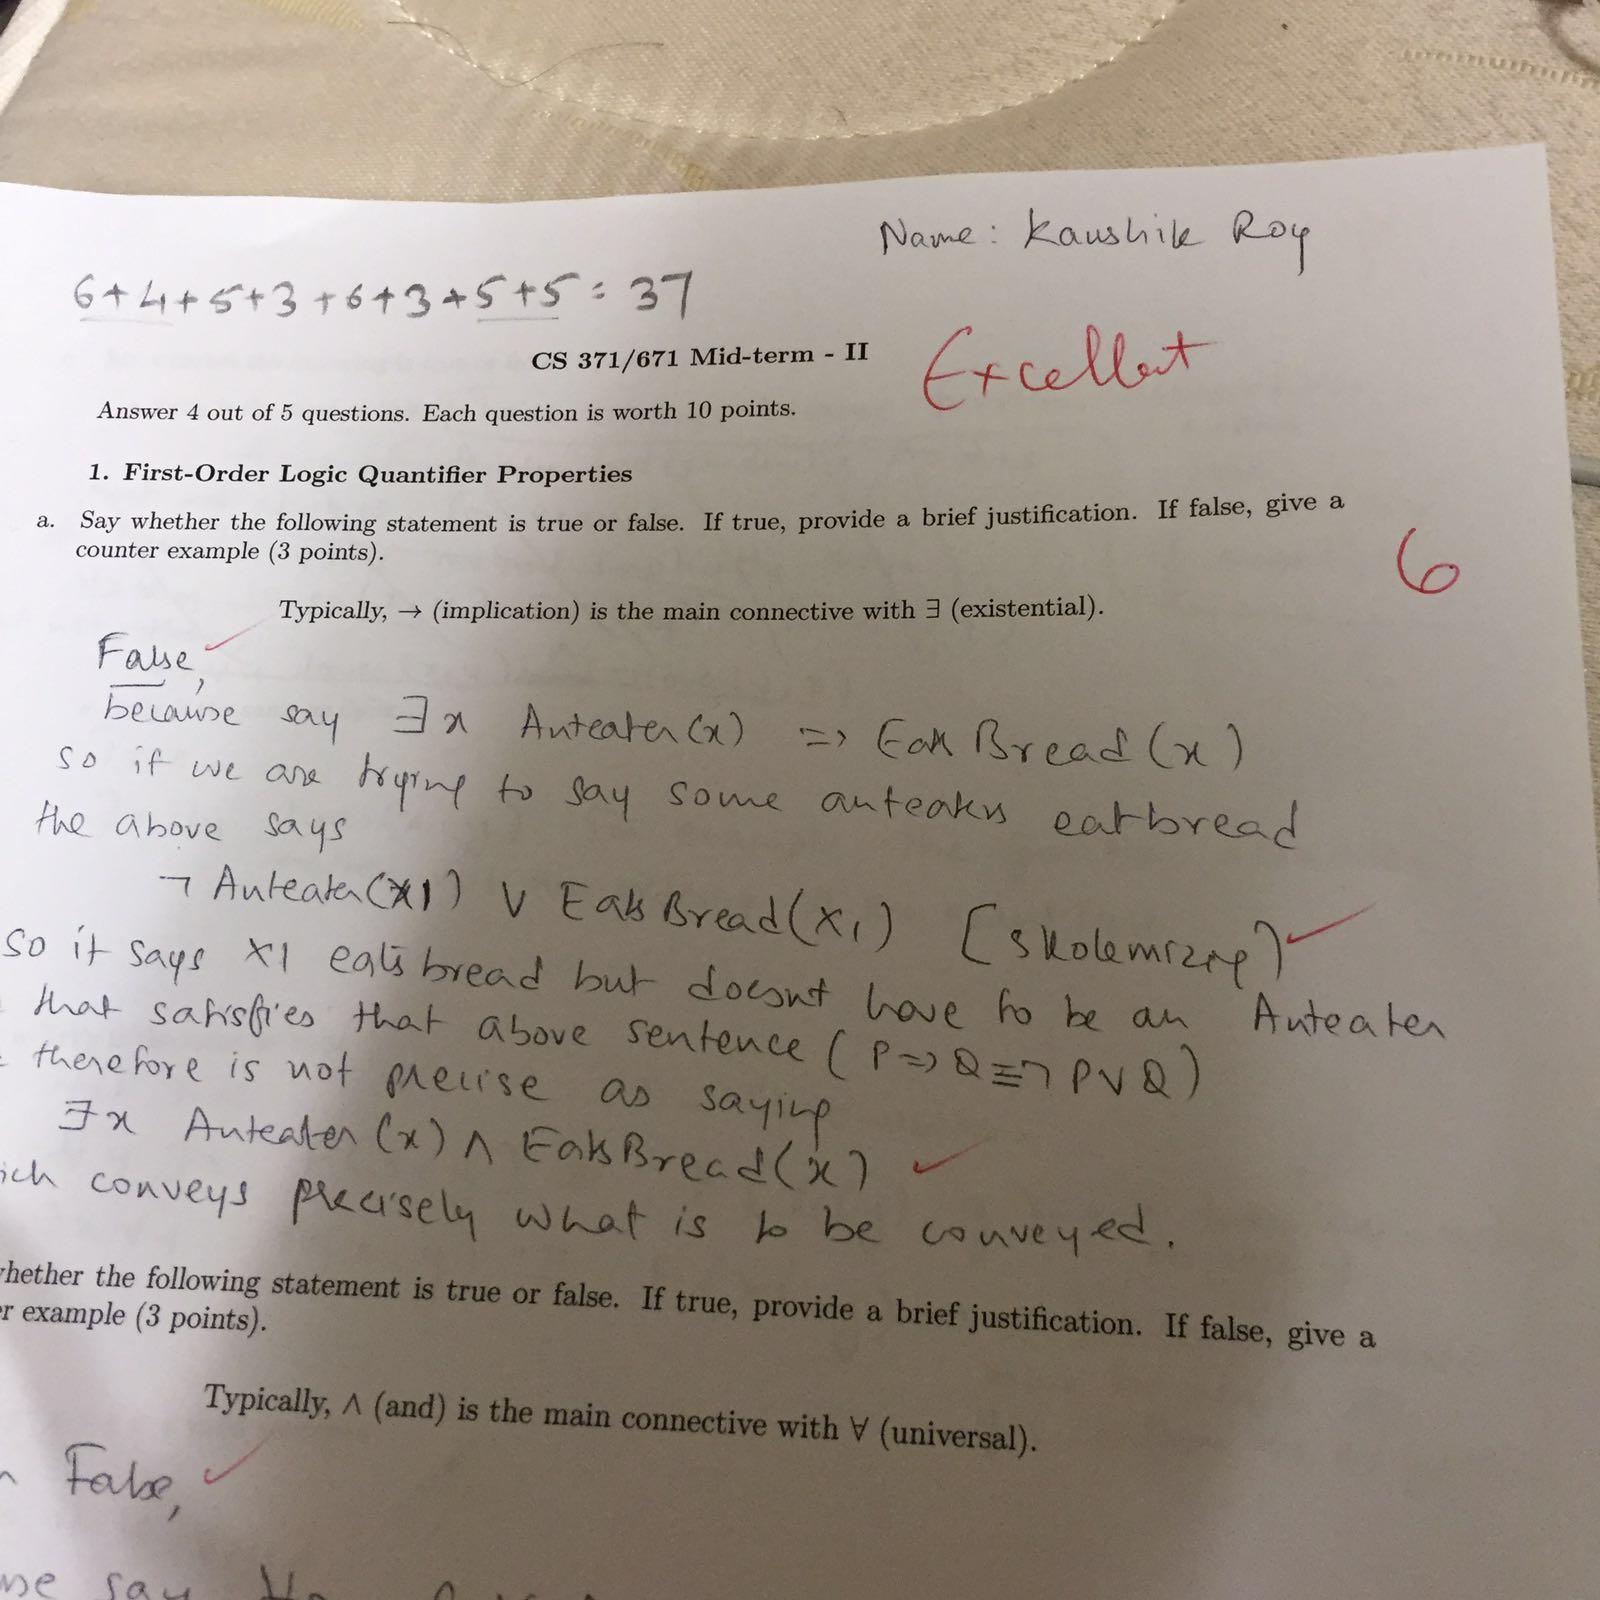 Name: Kaushik Roy
6+4+5+3+6+3+5+5 = 37
CS 371/671 Mid-term - II
Excellent
Answer 4 out of 5 questions. Each question is worth 10 points.
1. First-Order Logic Quantifier Properties
a. Say whether the following statement is true or false. If true, provide a brief justification. If false, give a
counter example (3 points).
6
Typically, → (implication) is the main connective with ∃ (existential).
False,
because say ∃x Anteater(x) => Eats Bread(x)
so if we are trying to say some anteaters eat bread
the above says
¬ Anteater(X1) ∨ Eats Bread(X1) [skolemizing]
so it says X1 eats bread but doesnt have to be an Anteater
that satisfies that above sentence (P=>Q≡¬P∨Q)
therefore is not precise as saying
∃x Anteater(x) ∧ EatsBread(x)
ich conveys precisely what is to be conveyed.
hether the following statement is true or false. If true, provide a brief justification. If false, give a
er example (3 points).
Typically, ∧ (and) is the main connective with ∀ (universal).
False,
say